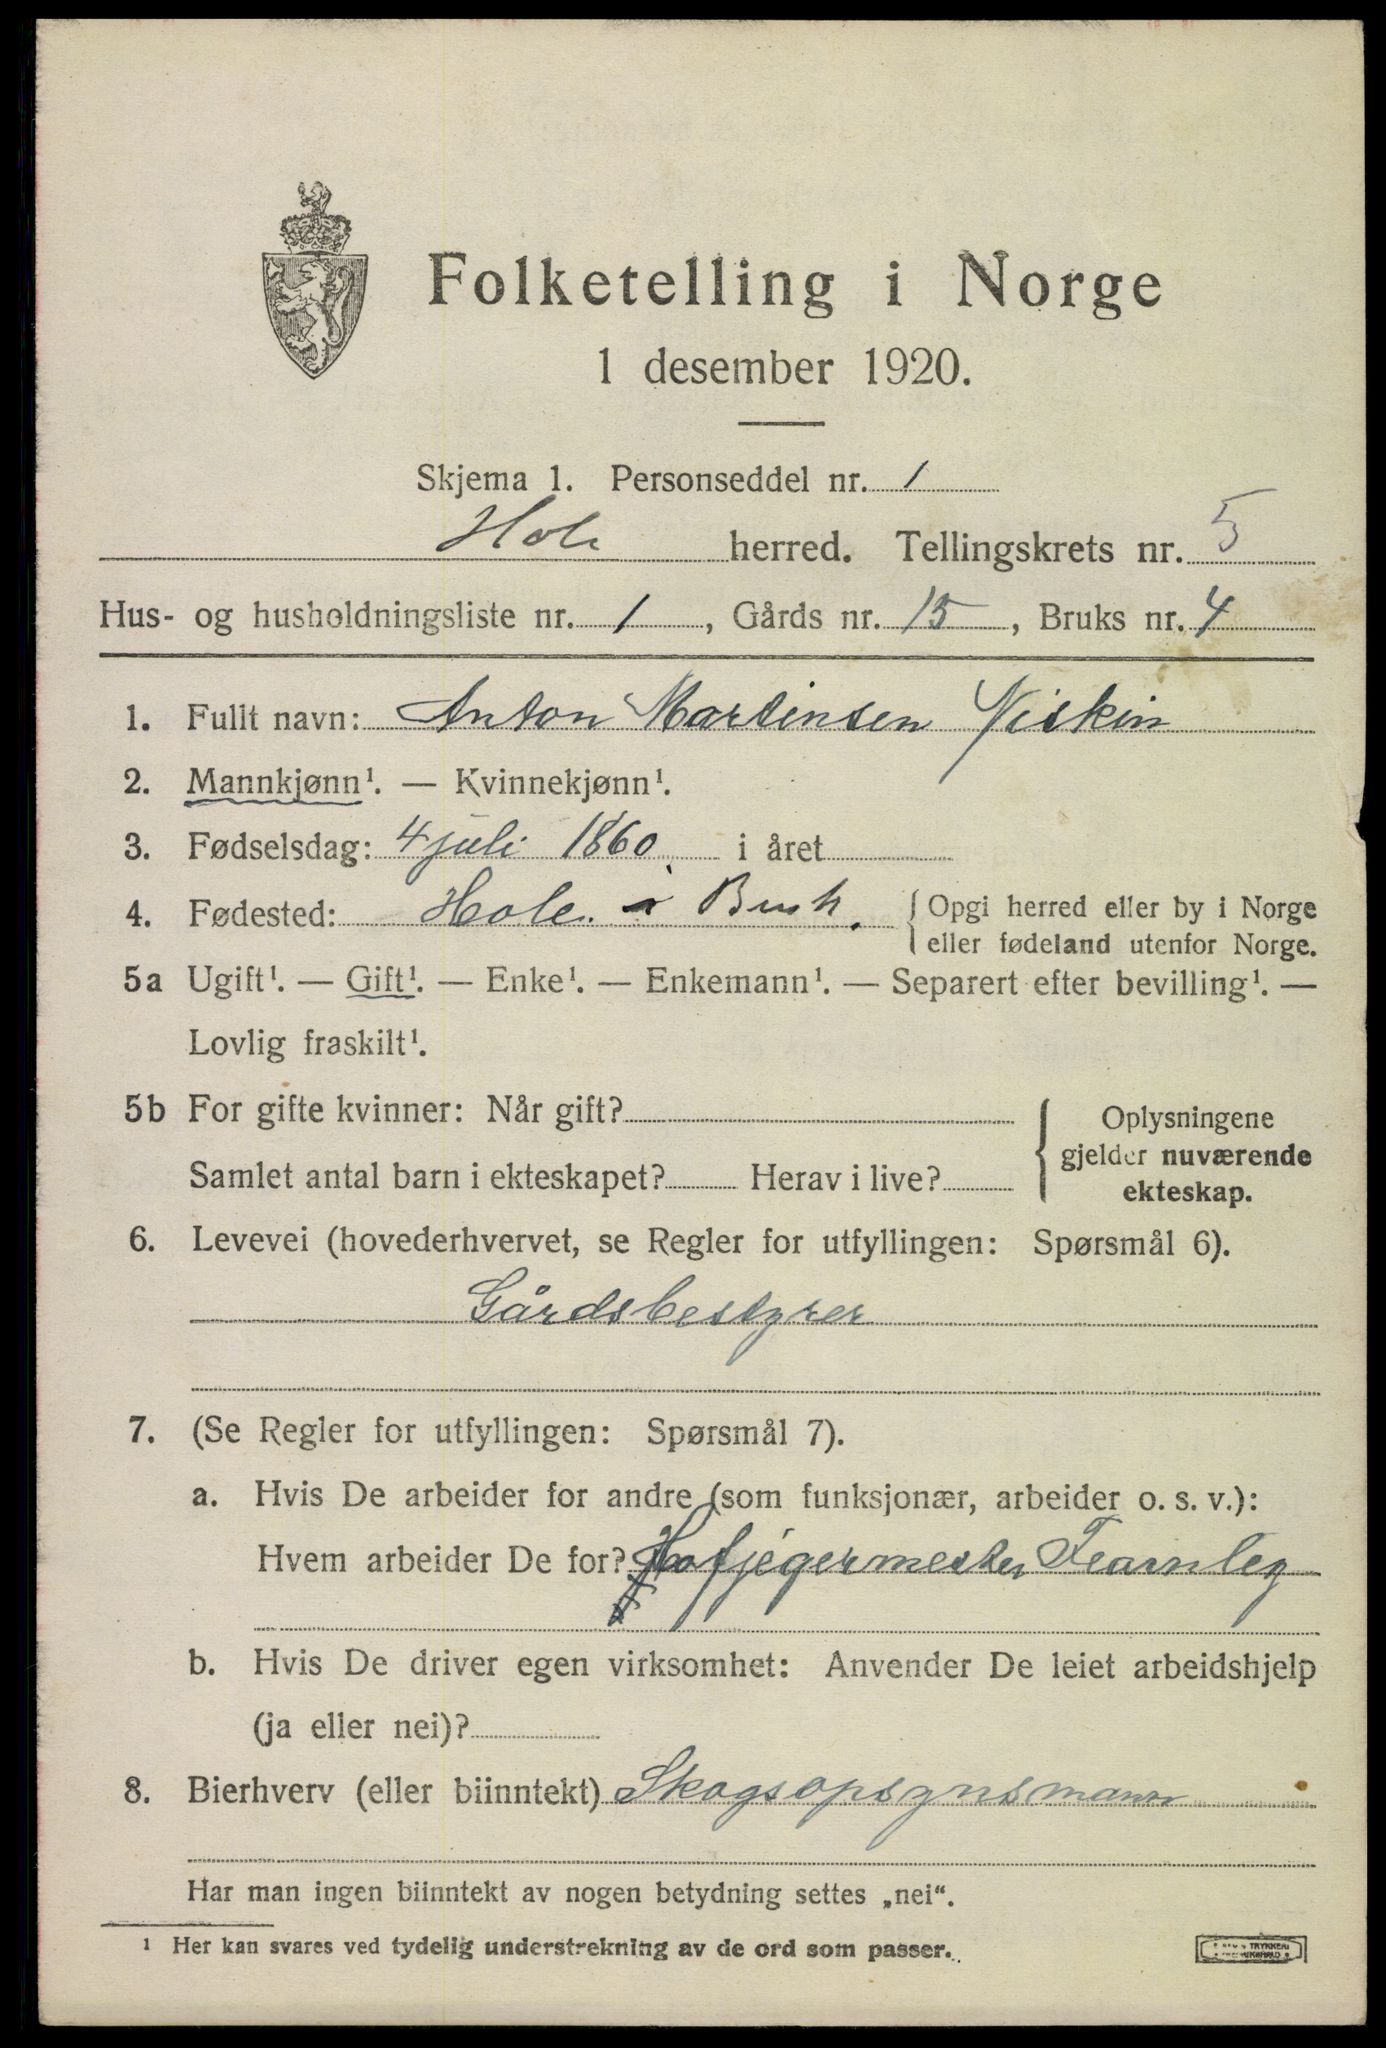 Folketelling i Norge
1 desember 1920.
Skjema 1. Personseddel nr. 1
Hole herred. Tellingskrets nr. 5
Hus- og husholdningsliste nr. 1, Gårds nr. 15, Bruks nr. 4
1. Fullt navn: Anton Martinsen Viskin
2. Mannkjønn¹. — Kvinnekjønn¹.
3. Fødselsdag: 4 juli 1860 i året
4. Fødested: Hole i Busk. { Opgi herred eller by i Norge
eller fødeland utenfor Norge.
5a Ugift¹. — Gift¹. — Enke¹. — Enkemann¹. — Separert efter bevilling¹. —
Lovlig fraskilt¹.
5b For gifte kvinner: Når gift?
Samlet antal barn i ekteskapet? Herav i live?
{ Oplysningene
gjelder nuværende
ekteskap.
6. Levevei (hovederhvervet, se Regler for utfyllingen: Spørsmål 6).
Gårdsbestyrer
7. (Se Regler for utfyllingen: Spørsmål 7).
a. Hvis De arbeider for andre (som funksjonær, arbeider o. s. v.):
Hvem arbeider De for? Hofjegermester Fearnley
b. Hvis De driver egen virksomhet: Anvender De leiet arbeidshjelp
(ja eller nei)?
8. Bierhverv (eller biinntekt) Skogsopsynsmann
Har man ingen biinntekt av nogen betydning settes „nei“.
¹ Her kan svares ved tydelig understrekning av de ord som passer.